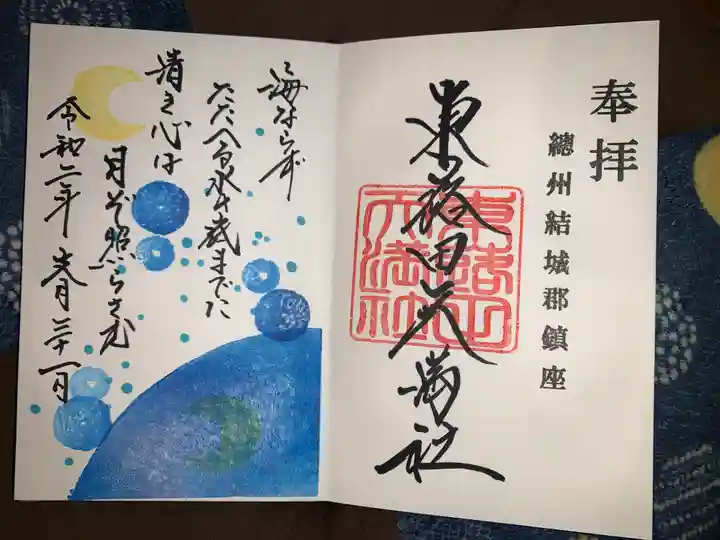 奉拝
總州結城郡鎮座
東蕗田天満社
天満社
海ならず
たたへる水の底までに
清き心は
月ぞ照らさむ
令和二年 月三十一日